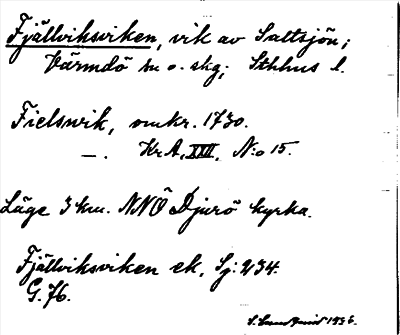 Fjällviksviken, vik av Saltsjön;
Värmdö sn o. skg; Sthlms l.
Fielswik, omkr. 1730.
—. Kr A, XXII, N:o 15.
Läge 3 km. NNÖ Djurö kyrka.
Fjällviksviken ek. Sj: 234.
G. 76.
1936.